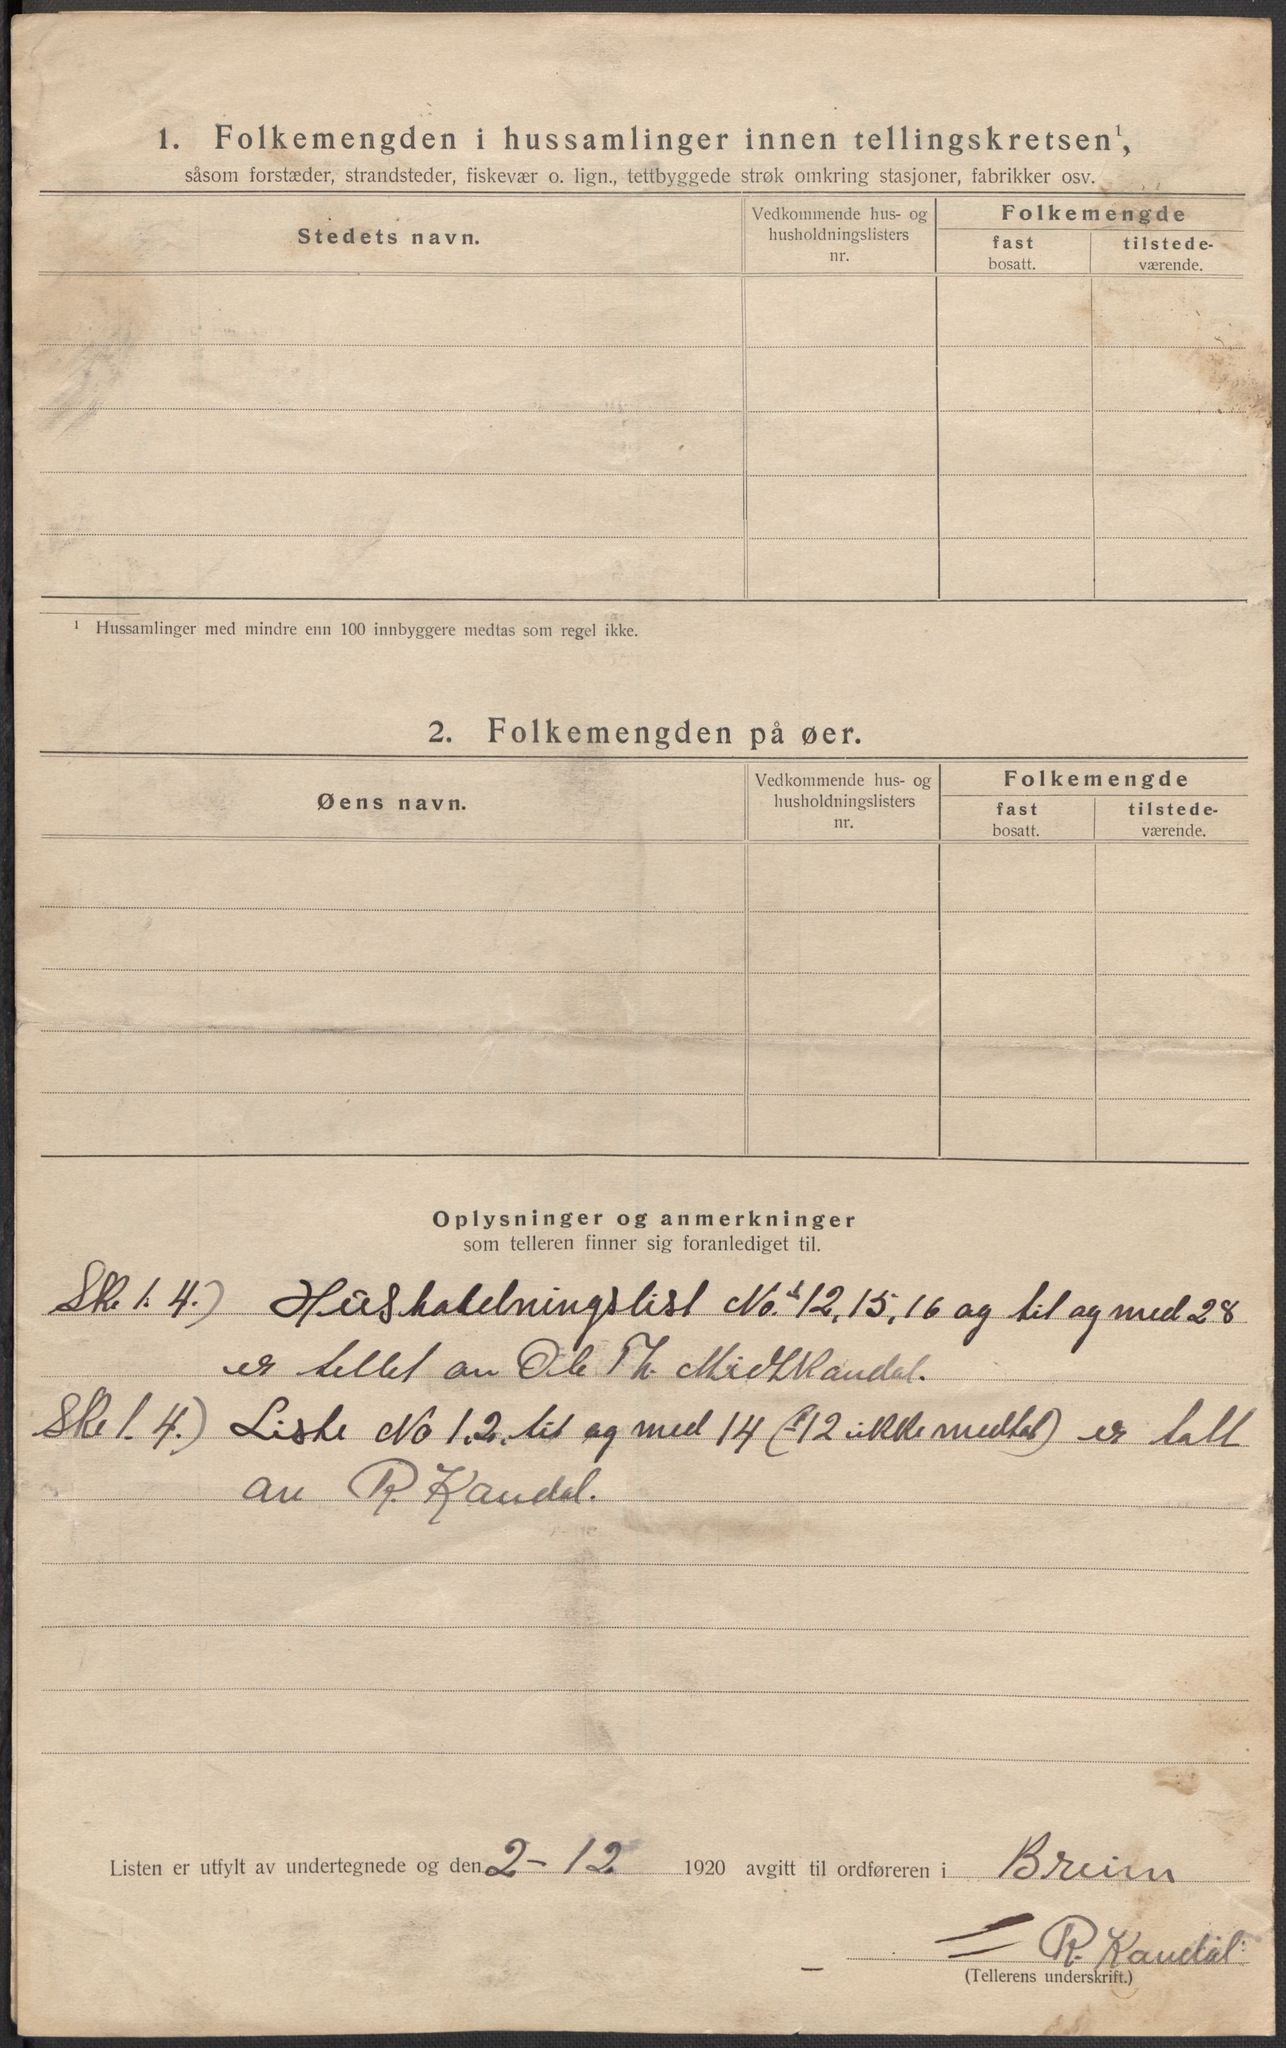 1. Folkemengden i hussamlinger innen tellingskretsen¹,
såsom forstæder, strandsteder, fiskevær o. lign., tettbyggede strøk omkring stasjoner, fabrikker osv.
Stedets navn.
Vedkommende hus- og
husholdningslisters
nr.
Folkemengde
fast
bosatt.
tilstede-
værende.
¹ Hussamlinger med mindre enn 100 innbyggere medtas som regel ikke.
2. Folkemengden på øer.
Øens navn.
Vedkommende hus- og
husholdningslisters
nr.
Folkemengde
fast
bosatt.
tilstede-
værende.
Oplysninger og anmerkninger
som telleren finner sig foranlediget til.
Ske 1. 4.) Hüshaldningslist No. 12, 15, 16 og til og med 28
er tellet av Ole Th. Midtkandal.
Ske 1. 4.) Liste No 1. 2. til og med 14 (12 ikke medtat) er talt
av R. Kandal.
Listen er utfylt av undertegnede og den 2-12 1920 avgitt til ordføreren i Breim
R. Kandal
(Tellerens underskrift.)